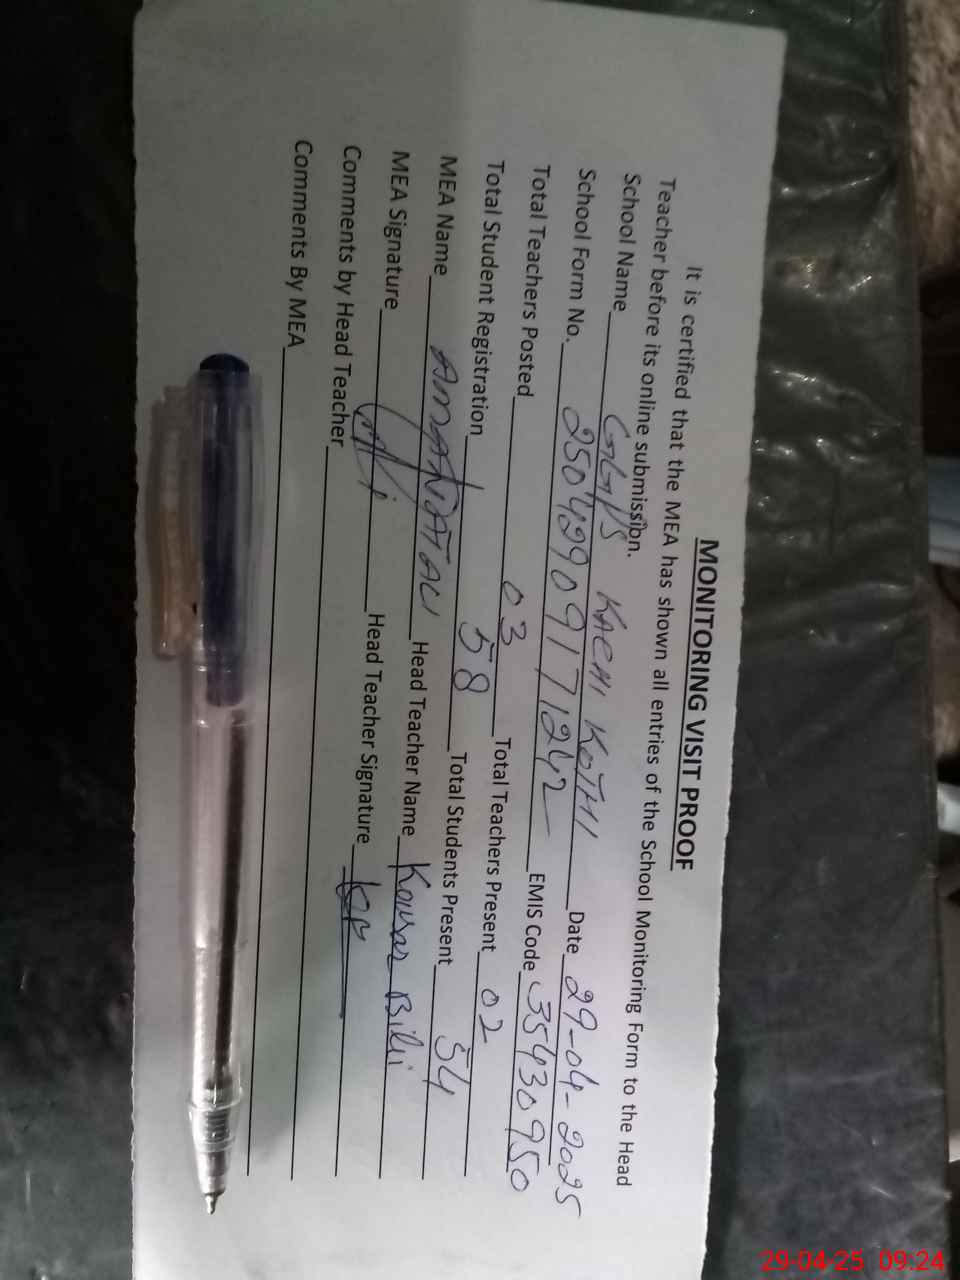 MONITORING VISIT PROOF
It is certified that the MEA has shown all entries of the School Monitoring Form to the Head
Teacher before its online submission.
School Name GGPS KACHI KOTHI Date 29-04-2025
School Form No. 25042909171242 EMIS Code 35430950
Total Teachers Posted 03 Total Teachers Present 02
Total Student Registration 58 Total Students Present 54
MEA Name AMANATALI Head Teacher Name Kousar Bibi
MEA Signature Head Teacher Signature
Comments by Head Teacher
Comments By MEA
29-04-25 09:24